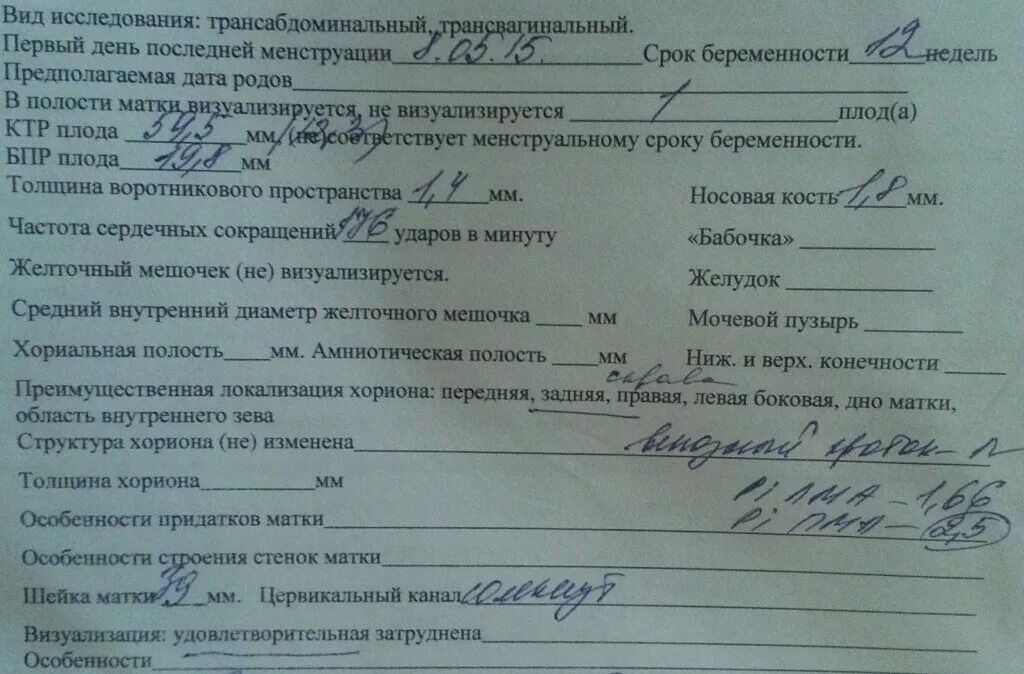 Вид исследования: трансабдоминальный, трансвагинальный.
Первый день последней менструации 8.05.15. Срок беременности 12 недель
Предполагаемая дата родов
В полости матки визуализируется, не визуализируется 1 плод(а)
КТР плода 59,5 мм, (12,3) (не) соответствует менструальному сроку беременности.
БПР плода 19,8 мм
Толщина воротникового пространства 1,4 мм. Носовая кость 1,8 мм.
Частота сердечных сокращений 176 ударов в минуту «Бабочка»
Желточный мешочек (не) визуализируется. Желудок
Средний внутренний диаметр желточного мешочка мм Мочевой пузырь
Хориальная полость мм. Амниотическая полость мм Ниж. и верх. конечности
справа
Преимущественная локализация хориона: передняя, задняя, правая, левая боковая, дно матки,
область внутреннего зева
Структура хориона (не) изменена венозный проток - N
Толщина хориона мм Pi ЛМА - 1,66
Особенности придатков матки Pi ПМА - 2,5
Особенности строения стенок матки
Шейка матки 39 мм. Цервикальный канал сомкнут
Визуализация: удовлетворительная затруднена
Особенности